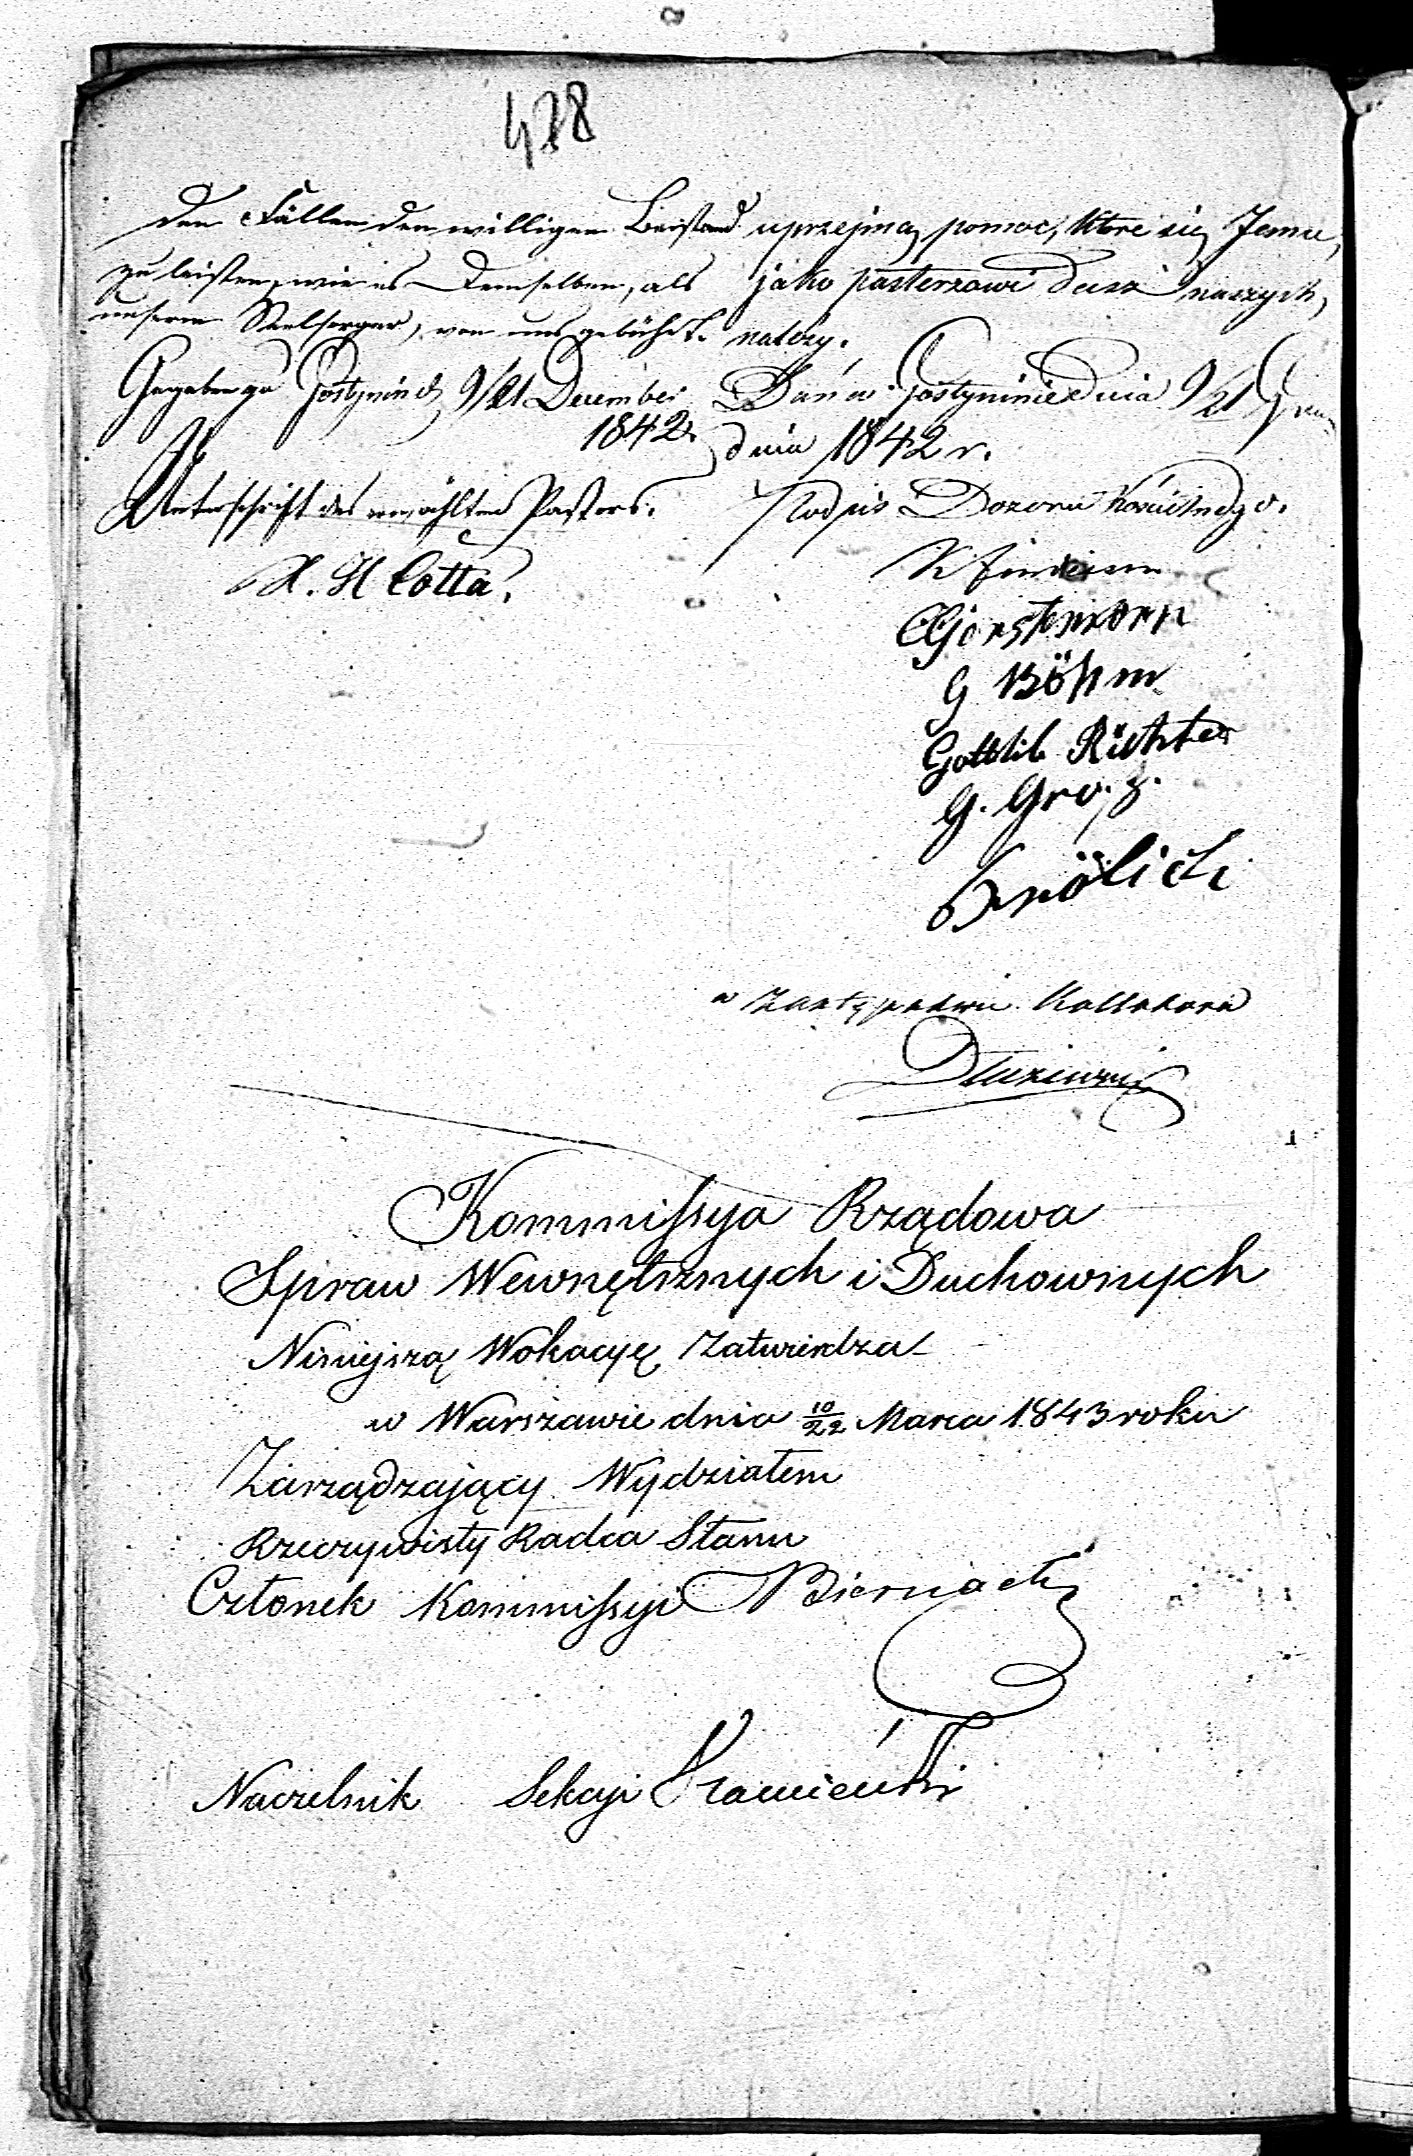 438
den Fällen den willigen Beistand
zu leisten, wie es Demselben, als
unserm Seelsorger, von uns gebührt.
Gegeben zu Gostynin d. 9/21 December
1842.
Unterschrift des erwählten Pastors.
H. Cotta.
uprzejmą pomoc, które się Jemu,
jako pasterzowi dusz naszych,
należy.
Dan w Gostyninie Dnia 9/21 Gru
dnia 1842 r.
Podpis Dozoru Kościelnego.
Gerstmann
G Böhm
Gottlib Richter
G. Groß.
Frölich
w Zastępstwie Kollatora
Kommissya Rządowa
Spraw Wewnętrznych i Duchownych
Niniejszą Wokacyę Zatwierdza
w Warszawie dnia 10/22 Marca 1843 roku
Zarządzający Wydziałem
Rzeczywisty Radca Stanu
Członek Kommissyi Biernacki
Naczelnik Sekcyi